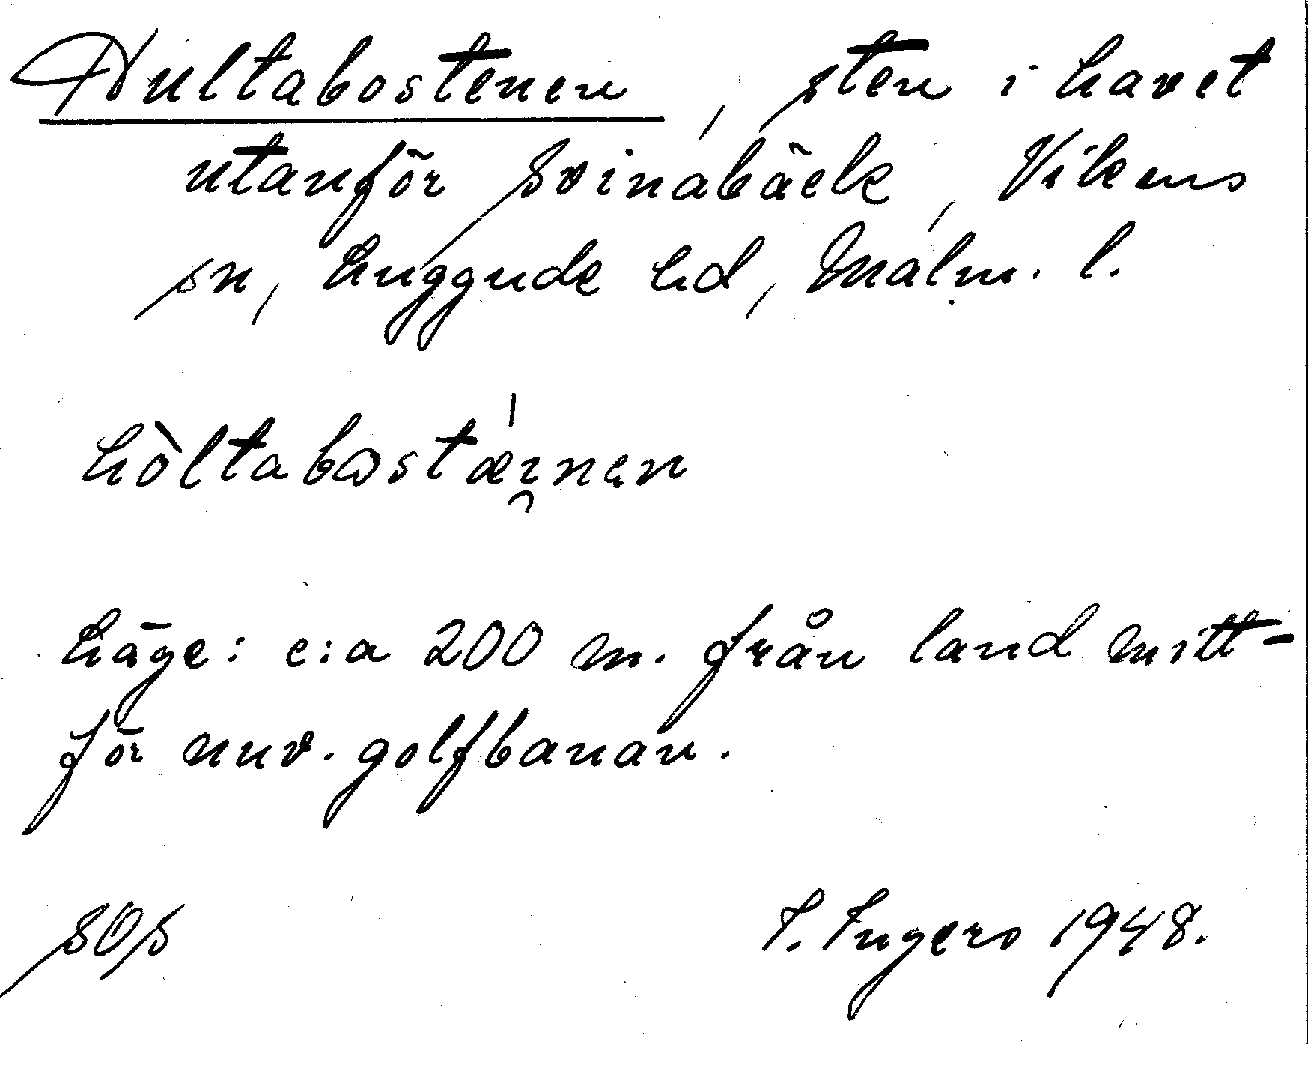 Hultabostenen, sten i havet
utanför Svinabäck, Vikens
sn, Luggude hd, Malm. l.
hòltabostæ̯inen
Läge: c:a 200 m. från land mitt-
för nuv. golfbanan.
SOS I. Ingers 1948.